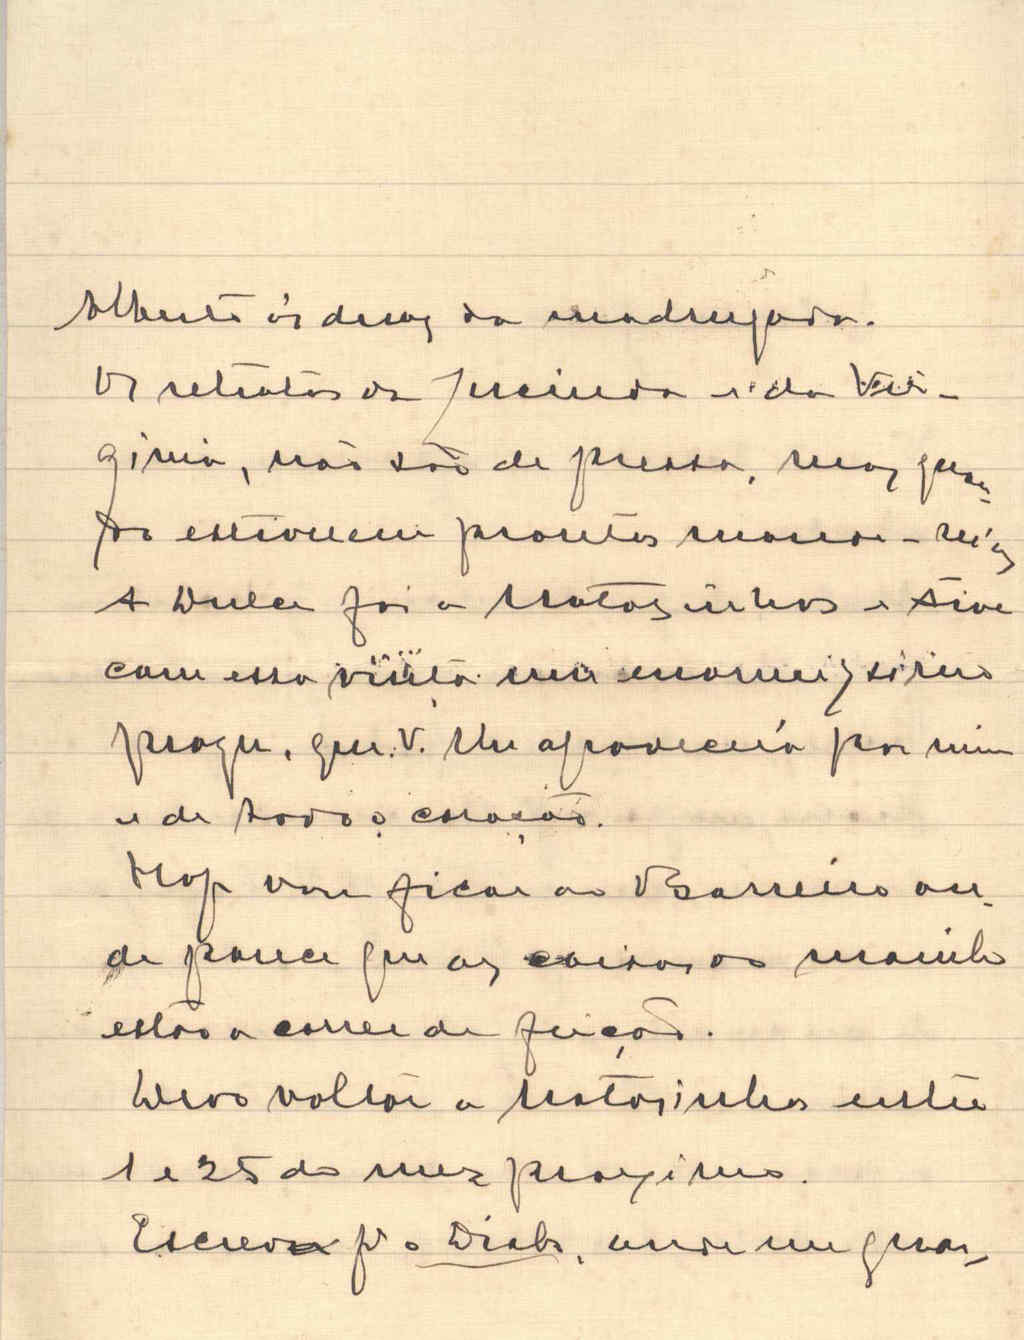 Alberto ás duas da madrugada.
Os retratos da Lucinda e da Vir-
ginia, não são de pressa, mas quan-
do estiverem prontos mande-m'os
A Dulce foi a Matosinhos e tive
com essa visita um enormissimo
prazer, que V. lhe agradecerá por mim
e de todo o coração.
Hoje vou ficar ao Barreiro on-
de parece que as coisas ao
estão a correr de feição.
Devo voltar a Matosinhos entre
1 e 25 do mez proximo.
Escreva p.ª o Diabo, onde me guar-